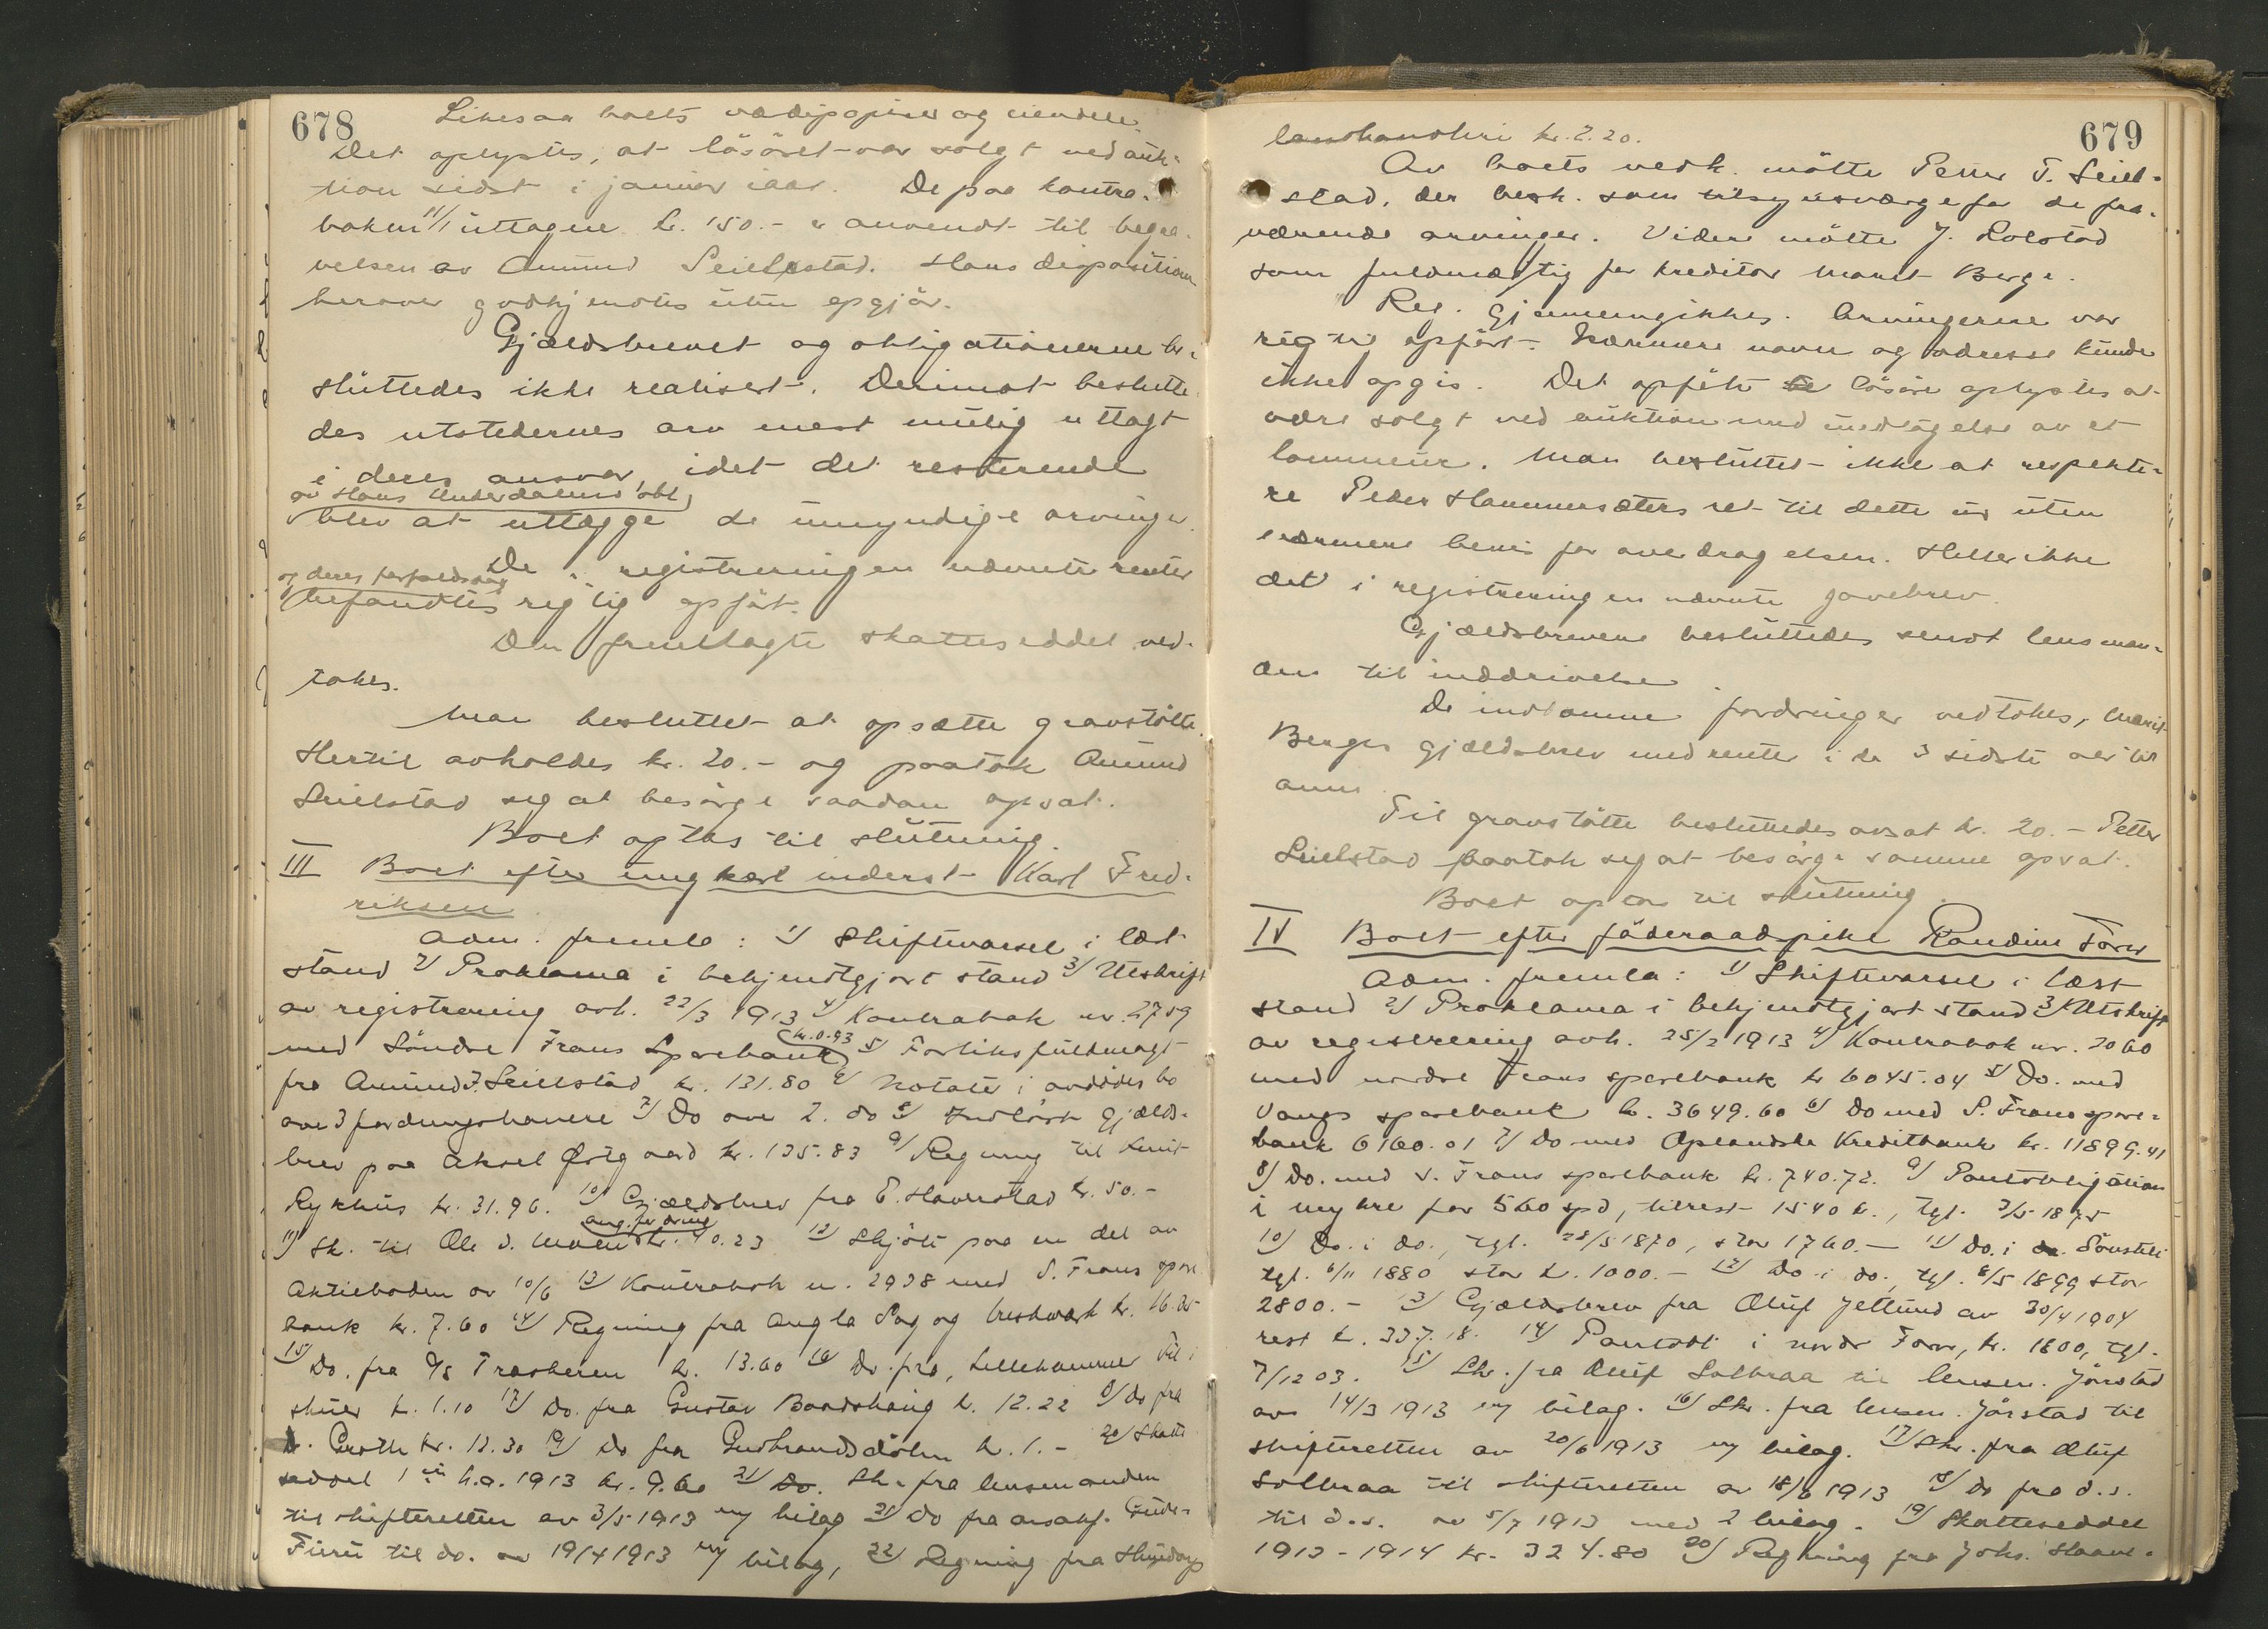 678
Likesaa boets værdipapirer og eiendele.
Det oplystes, at lösöret var solgt ved auk-
tion sidst i januar iaar. De paa kontra-
boken 11/1 uttagne kr. 150.- er anvendt til begra-
velsen av Amund Seielstad. Hans disposition
herover godkjendtes uten opgjör.
Gjældsbrevet og obligationerne be-
sluttedes ikke realisert. Derimot beslutte
des utstedernes arv mest mulig uttagt
i deres ansvar, idet det resterende
av Hans Underdalens obl.
blev at utlægge de umyndige arvinger.
De i registreringen nævnte renter
og deres forfaldsdag
befandtes rigtig opfört.
Den fremlagte skatteseddel ved-
tokes.
Man besluttet at opsætte gravstötte.
Hertil avholdes kr. 20.- og paatok Amund
Seielstad seg at besörge saadan opsat.
Boet optas til slutning.
III Boet efter ungkarl inderst Karl Fred-
riksen.
Adm. fremla: 1/ Skiftevarsel i læst
stand 2/ Proklama i bekjendtgjort stand 3/ Utskrift
av registrering avh. 22/3 1913 4/ Kontrabok nr. 2759
med Söndre Frons Sparebank kr. 0.93 5/ Forliksfuldmagt
fra Amund J. Seielstad kr. 131.80 6/ Notater i avdödes bo
over 3 fordringshavere 7/ Do over 2. do 8/ Indlöst gjælds-
brev paa Aksel Östgaard kr. 135.83 9/ Regning til Knut
Rykhus kr. 31.96. 10/ Gjældsbrev fra E. Haverstad kr. 50.-
11/ Sk. til Ole J. Moen ang. fordring kr. 40.23 12/ Skjöte paa en del av
Aktieboden av 10/6 13/ Kontrabok n. 2938 med S. Frons spare
bank kr. 7.60 14/ Regning fra Augla Sag og brukverk kr. 16.25
15/ Do. fra A/S Traaheren kr. 13.60 16/ Do. fra Lillehammer
kr. 1.10 17/ Do. fra Gustav Baadshaug kr. 12.22 18/ Do fra
Dr. Groth kr. 13.30 19/ Do fra Gudbrandsdölen kr. 1.- 20/ Skatte
seddel 1ste h.a. 1913 kr. 9.60 21/ Do. Sk. fra lensmanden
til skifteretten av 3/5 1913 m/ bilag 21/ Do fra
til do. av 19/4 1913 m/ bilag, 22/ Regning fra Hundorp
679
landhandleri kr. 2.20.
Av boets vedk. mötte Petter T. Seiel-
stad, der besk. som tilsynsværge for de fra-
værende arvinger. Videre mötte J. Rolstad
som fuldmægtig for kreditor Marit Berge.
Reg. gjennemgikkes. Arvingerne var
rigtig opfört. Nærmere navn og adresse kunde
ikke opgis. Det opförte lösöre oplystes at
være solgt ved auktion med undtagelse av et
lommeur. Man besluttet ikke at respekte-
re Peder Hammersæters ret til dette ur uten
nærmere bevis for overdragelsen. Heller ikke
det i registreringen nævnte gavebrev.
Gjældsbrevene besluttedes sendt lensman-
den til inddrivelse.
De indkomne fordringer vedtokes, Marit
Berges gjældsbrev med renter i de 3 sidste aar til
anm.
Til gravstötte besluttedes avsat kr. 20.- Petter
Seielstad paatok seg at besörge samme opsat.
Boet optas til slutning.
IV Boet efter föderaadspike Randine Forr
Adm. fremla: 1/ Skiftevarsel i læst
stand 2/ Proklama i bekjendtgjort stand 3/ Utskrift
av registrering avh. 25/2 1913 4/ Kontrabok nr. 2060
med nordre Frons sparebank kr 6045.04 5/ Do. med
Vangs sparebank kr. 3649.60 6/ Do med S. Frons spare-
bank 6160.01 7/ Do med Oplandske Kreditbank kr. 11899.41
8/ Do. med S. Frons sparebank kr. 740.72. 9/ Pantobligation
i for 560 spd, tilrest 1540 kr., tgl. 3/5 1875
10/ Do. i do., tgl. 28/5 1870, stor 1760.- 11/ Do. i
tgl. 6/11 1880 stor kr. 1000.- 12/ Do i do., tgl. 8/5 1899 stor
2800.- 13/ Gjældsbrev fra Oluf Jetlund av 30/4 1904
rest kr. 337.18. 14/ Pantobl. i nordr Forr, kr. 1800, tgl.
7/12 03. 15/ Skr. fra Oluf Solbraa til lensm. Jörstad
av 14/3 1913 m/ bilag. 16/ Skr. fra lensm. Jörstad til
skifteretten av 20/6 1913 m/ bilag. 17/ Skr. fra Oluf
Solbraa til skifteretten av 18/6 1913 18/ Do fra d.s.
til d.s. av 5/7 1913 med 2 bilag. 19/ Skatteseddel
1913-1914 kr. 324.80 20/ Regning fra Johs. Haave-